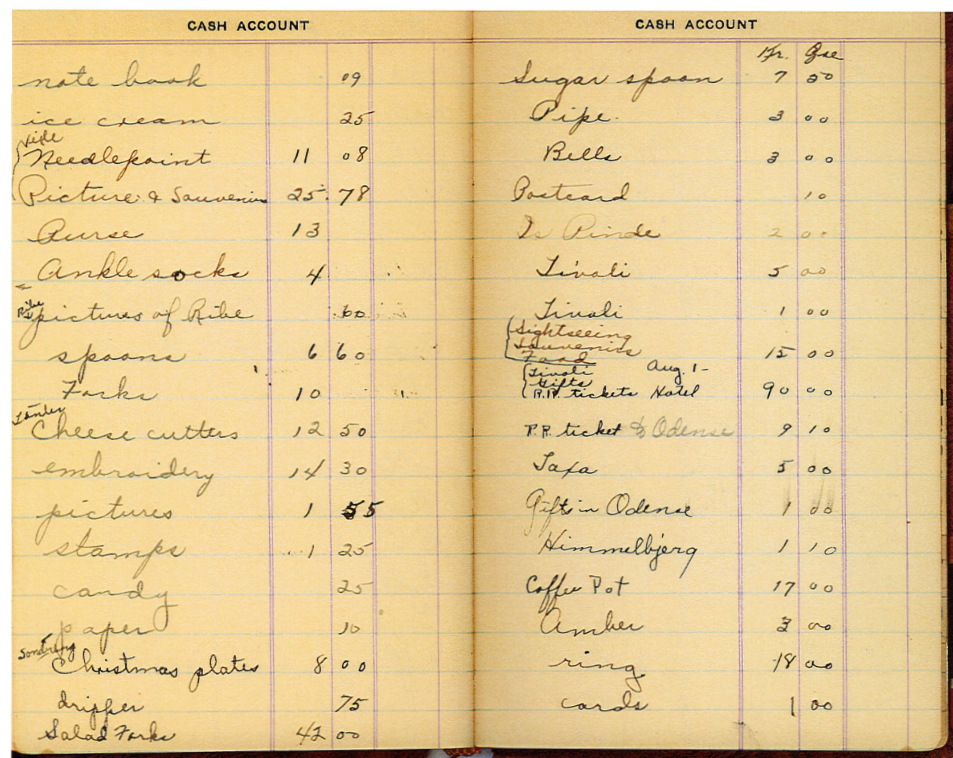 CASH ACCOUNT
note book 09
ice cream 25
Vejle
Needlepoint 11 08
Picture & Souvenirs 25. 78
Purse 13
Ankle socks 4
Ribe
pictures of Ribe 60
spoons 6 60
Forks 10
Tönder
Cheese cutters 12 50
embroidery 14 30
pictures 1 55
stamps 1 25
candy 25
paper 10
Christmas plates 8 00
dripper 75
Salad Forks 42 00
CASH ACCOUNT
Kr. Øre
Sugar spoon 7 50
Pipe. 3 00
Bells 3 00
Postcard 10
To Rinde 2 00
Tivoli 5 00
Tivoli 1 00
Sightseeing
Souvenirs 15 00
Food
Tivoli Aug. 1-
Gifts
R.R. tickets Hotel 90 00
R.R. ticket to Odense 9 10
Taxa 5 00
Gifts in Odense 1 00
Himmelbjerg 1 10
Coffee Pot 17 00
Amber 3 00
ring 18 00
cards 1 00